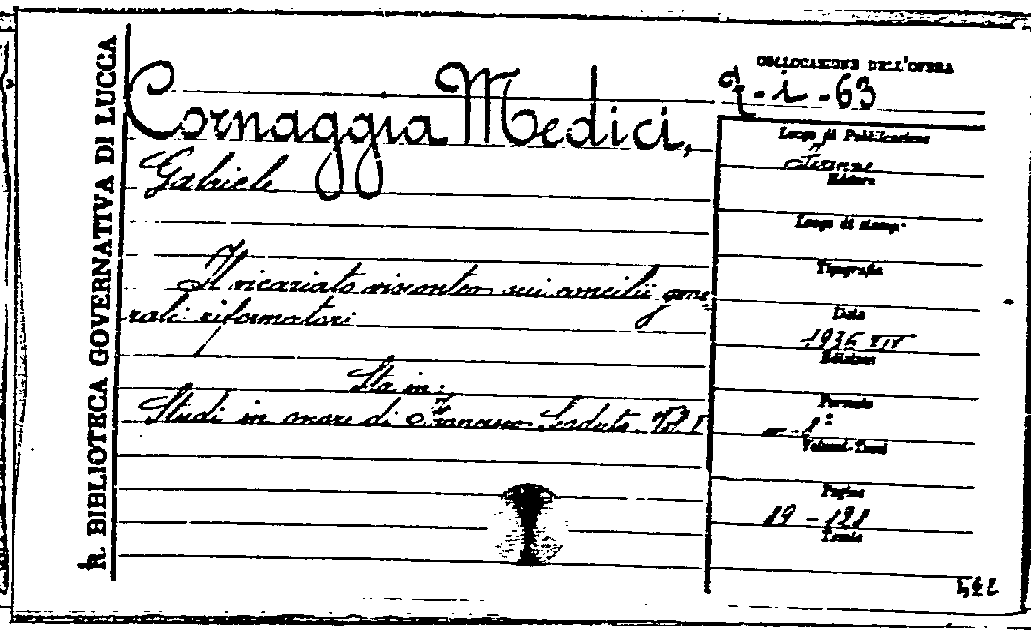 R. BIBLIOTECA GOVERNATIVA DI LUCCA
COLLOCAZIONE DELL'OPERA
q - i - 63
Cornaggia Medici,
Gabriele
Il vicariato visconteo sui concilii gene-
rali riformatori
Sta in:
Studi in onore di Francesco Scaduto. Vol I
Luogo di Pubblicazione
Firenze
Editore
Luogo di stampa
Tipografia
Data
1936 XIV
Edizione
Formato
in-8°
Volumi-Tomi
Pagine
19 - 121
Tavole